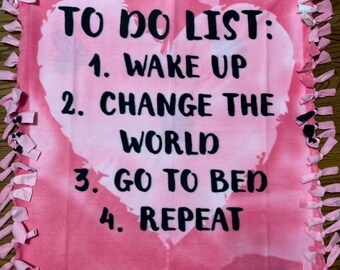 TO DO LIST:
1. WAKE UP
2. CHANGE THE
WORLD
3. GO TO BED
4. REPEAT